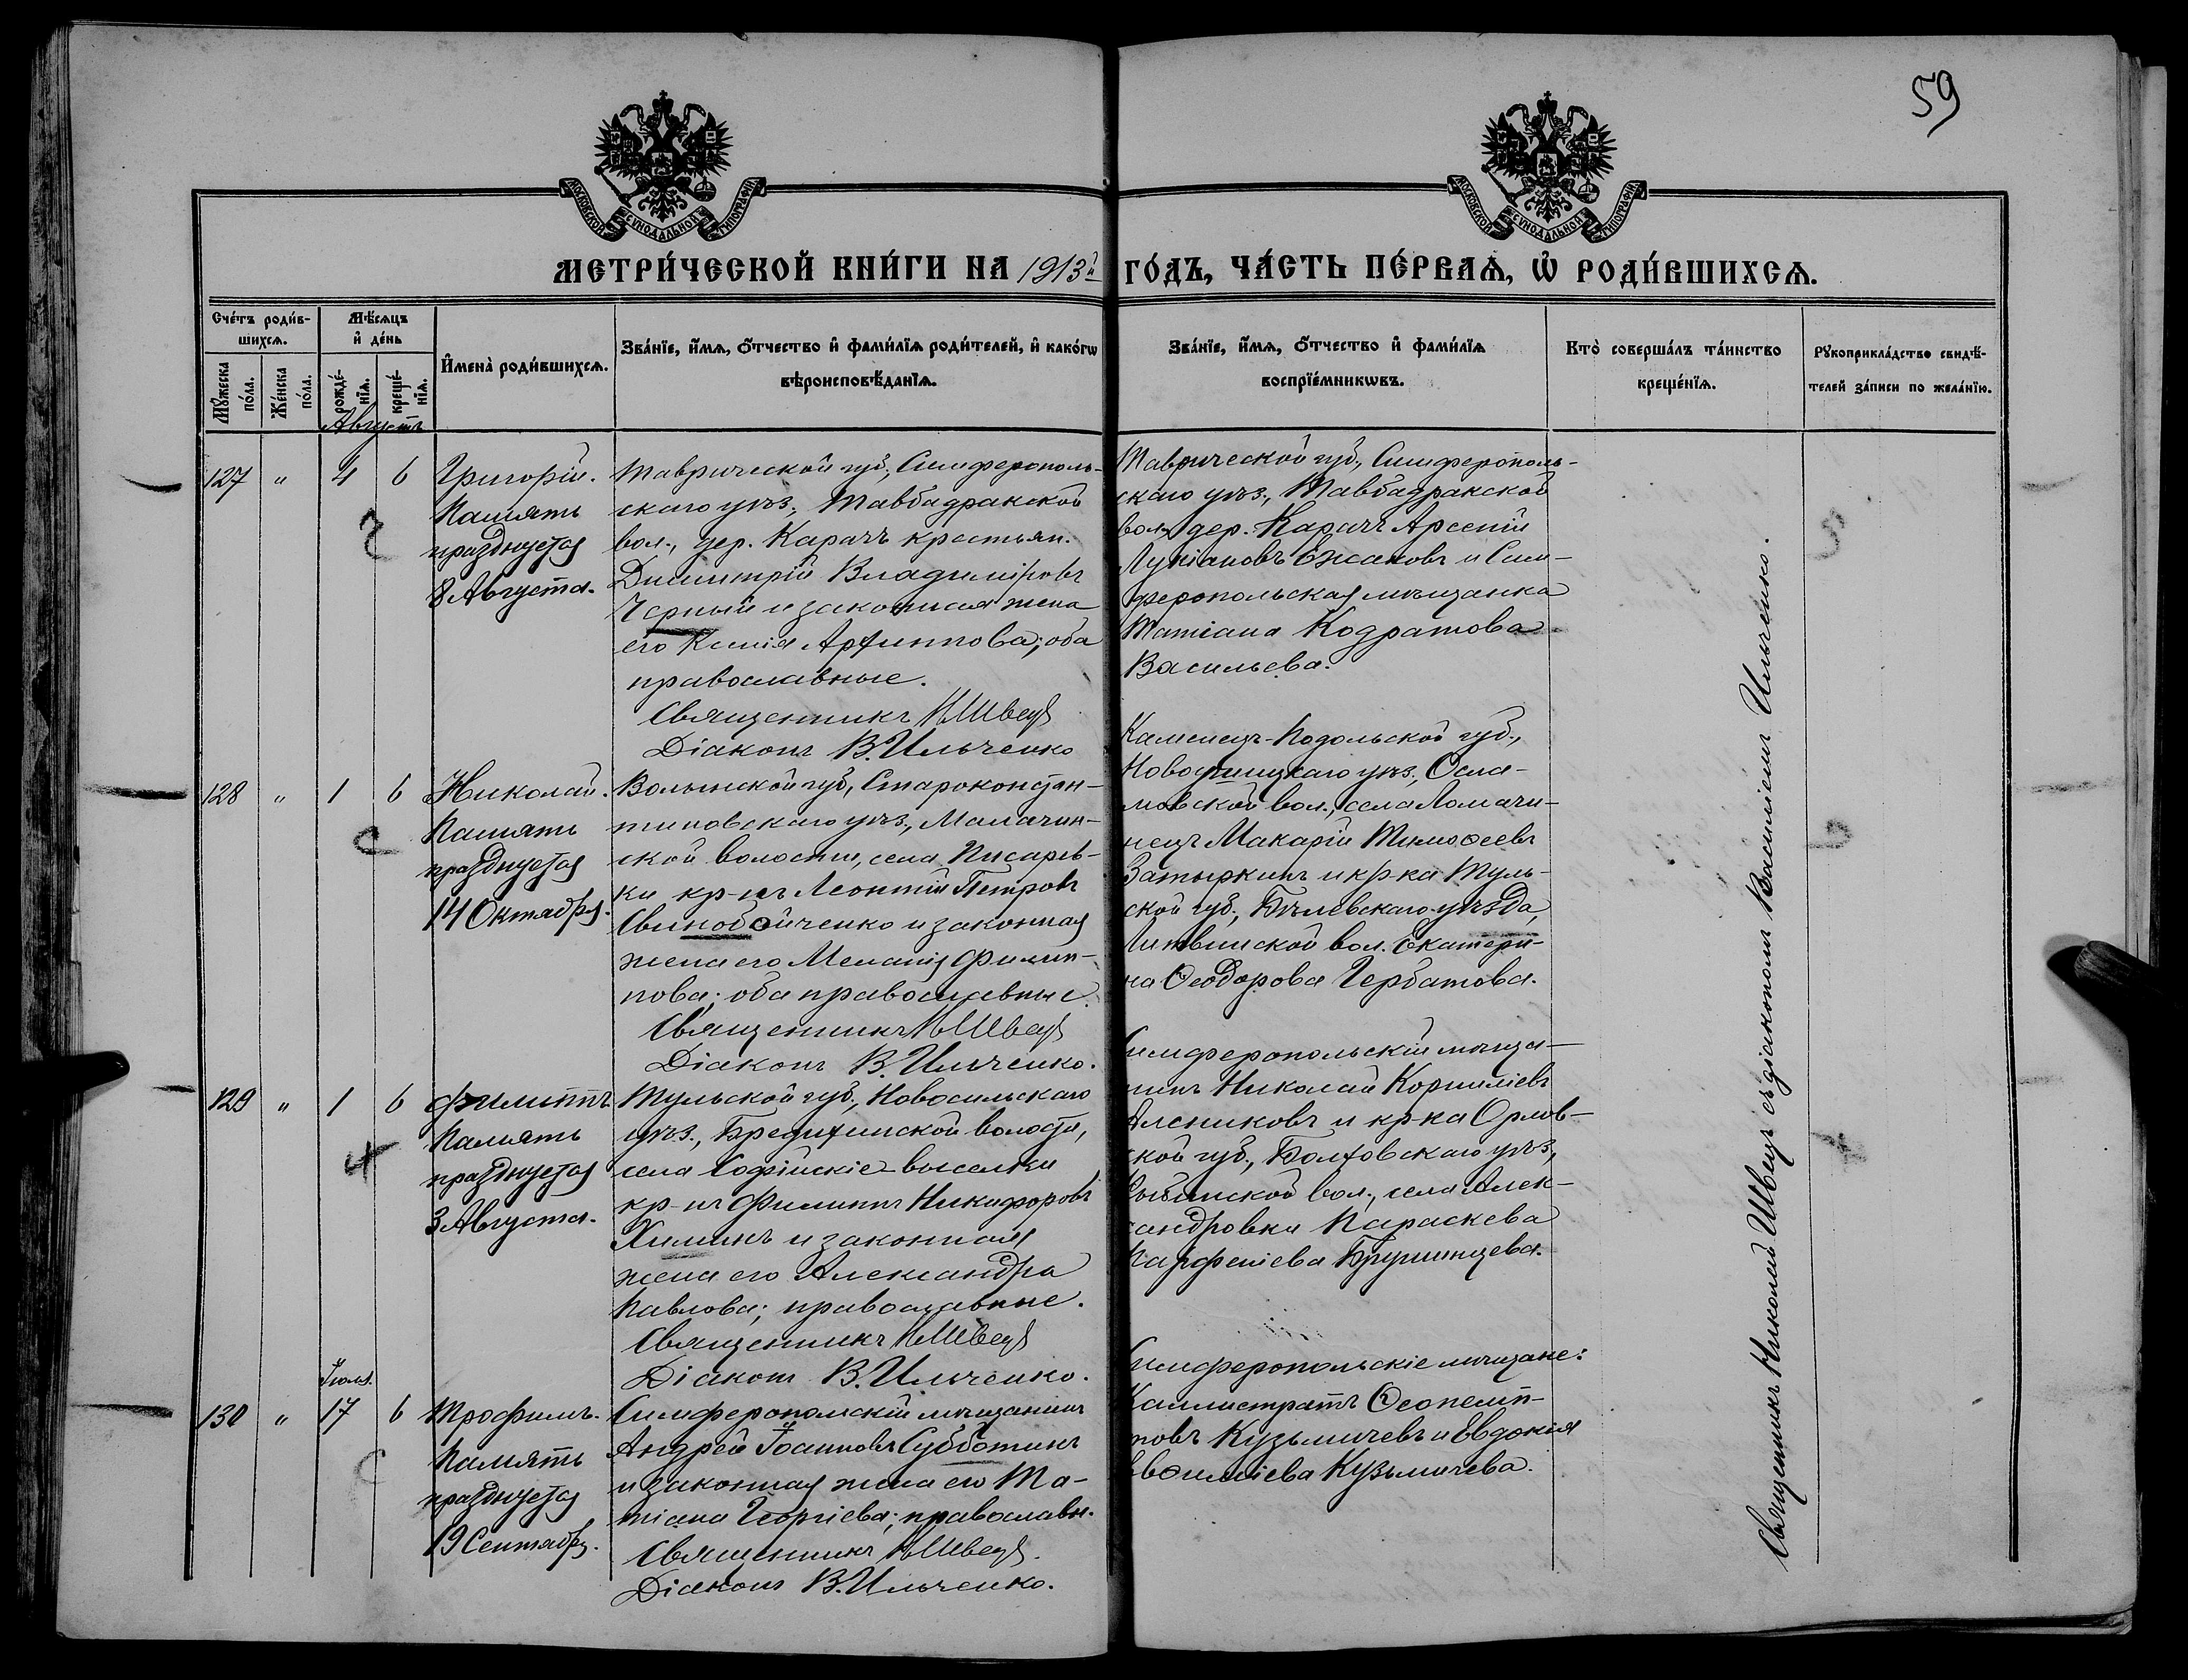 59
МОСКОВСКОЙ СѴНОДАЛЬНОЙ ТИПОГРАФІИ
МОСКОВСКОЙ СѴНОДАЛЬНОЙ ТИПОГРАФІИ
МЕТРИ́ЧЕСКОЙ КНИ́ГИ НА 1913й ГО́ДЪ, ЧА́СТЬ ПЕ́РВАѦ, Ѡ҆ РОДИ́ВШИХСѦ.
Сче́тъ роди́в-
шихсѧ.
Мѣ́сѧцъ
и҆ де́нь
Мꙋ́жеска
по́ла.
Же́нска
по́ла.
рожде́-
нїѧ.
креще́-
нїѧ.
И҆мена̀ роди́вшихсѧ.
Зва́нїе, и҆́мѧ, ѻ҆́тчество и҆ фами́лїѧ роди́телей, и҆ како́гѡ
вѣроисповѣ́данїѧ.
Зва́нїе, и҆́мѧ, ѻ҆́тчество и҆ фами́лїѧ
воспрїе́мникѡвъ.
Кто̀ соверша́лъ та́инство
креще́нїѧ.
Рꙋкоприкла́дство свидѣ́-
телей за́писи по жела́нїю.
Августъ
127 " 4 6
Григорій.
Память
празднуется
8 Августа.
Таврической губ., Симферополь-
скаго уѣз., Тавбадракской
вол., дер. Карачъ крестьян.
Димитрій Владиміровъ
Черный и законная жена
его Ксенія Архиппова; оба
православные.
Священникъ Н Швецъ
Діаконъ В. Ильченко
Таврической губ., Симферополь-
скаго уѣз., Тавбадракской
вол., дер. Карачъ Арсеній
Лукіановъ Ежаковъ и Сим-
феропольская мѣщанка
Татіана Кодратова
Васильева.
128 " 1 6
Николай.
Память
празднуется
14 Октября.
Волынской губ., Староконстан-
тиновскаго уѣз., Малачин-
ской волости, села Писарев-
ки кр-нъ Леонтій Петровъ
Свинобойченко и законная
жена его Меланія Филип-
пова; оба православные.
Священникъ Н Швецъ
Діаконъ В. Ильченко.
Каменецъ-Подольской губ.,
Новоушицкаго уѣз., Осла-
мовской вол., села Ломачи-
нецъ Макарій Тимоѳеевъ
Затыркинъ и кр-ка Туль-
ской губ., Бѣлевскаго уѣзда,
Литвинской вол. Екатери-
на Ѳеодорова Гербатова.
129 " 1 6
Филиппъ
Память
празднуется
3 Августа.
Тульской губ., Новосильскаго
уѣз., Бредихинской волости,
села Софійскіе-выселки
кр-нъ Филиппъ Никифоровъ
Химинъ и законная
жена его Александра
Павлова; православные.
Священникъ Н Швецъ
Діаконъ В. Ильченко.
Симферопольскій мѣща-
нинъ Николай Корниліевъ
Алениковъ и кр-ка Орлов-
ской губ., Болховскаго уѣз.,
вол., села Алек-
сандровки Параскева
Парфеніева
Іюля.
130 " 17 6
Трофимъ.
Память
празднуется
19 Сентября.
Симферопольскій мѣщанинъ
Андрей Іоанновъ Субботинъ
и законная жена его Та-
тіана Георгіева; православн.
Священникъ Н Швецъ.
Діаконъ В. Ильченко.
Симферопольскіе мѣщане:
Каллистратъ Ѳеопемп-
товъ Кузьмичевъ и Евдокія
Кузьмичева.
Священникъ Николай Швецъ съ діакономъ Василіемъ Ильченко.